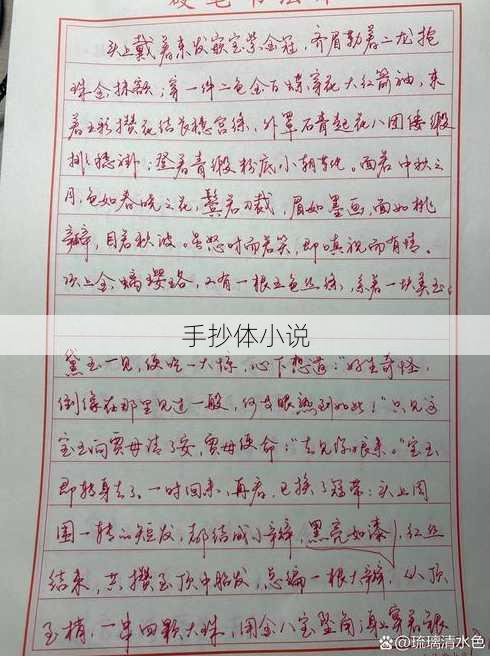 硬笔书法
头上戴着束发嵌宝紫金冠，齐眉勒着二龙抢
珠金抹额；穿一件二色金百蝶穿花大红箭袖，束
着五彩攒花结长穗宫绦，外罩石青起花八团倭缎
排穗褂；登着青缎粉底小朝靴。面若中秋之
月，色如春晓之花，鬓若刀裁，眉如墨画，面如桃
瓣，目若秋波。虽怒时而若笑，即嗔视而有情。
项上金螭璎珞，又有一根五色丝绦，系着一块美玉。
手抄体小说
黛玉一见，便吃一大惊，心下想道："好生奇怪，
倒像在那里见过一般，何等眼熟到如此！"只见这
宝玉向贾母请了安，贾母便命："去见你娘来。"宝玉
即转身去了。一时回来，再看，已换了冠带：头上周
围一转的短发，都结成小辫，黑亮如漆，红丝
结束，共攒至顶中胎发，总编一根大辫，从顶
至梢，一串四颗大珠，用金八宝坠角；身上穿着银
@琉璃清水色